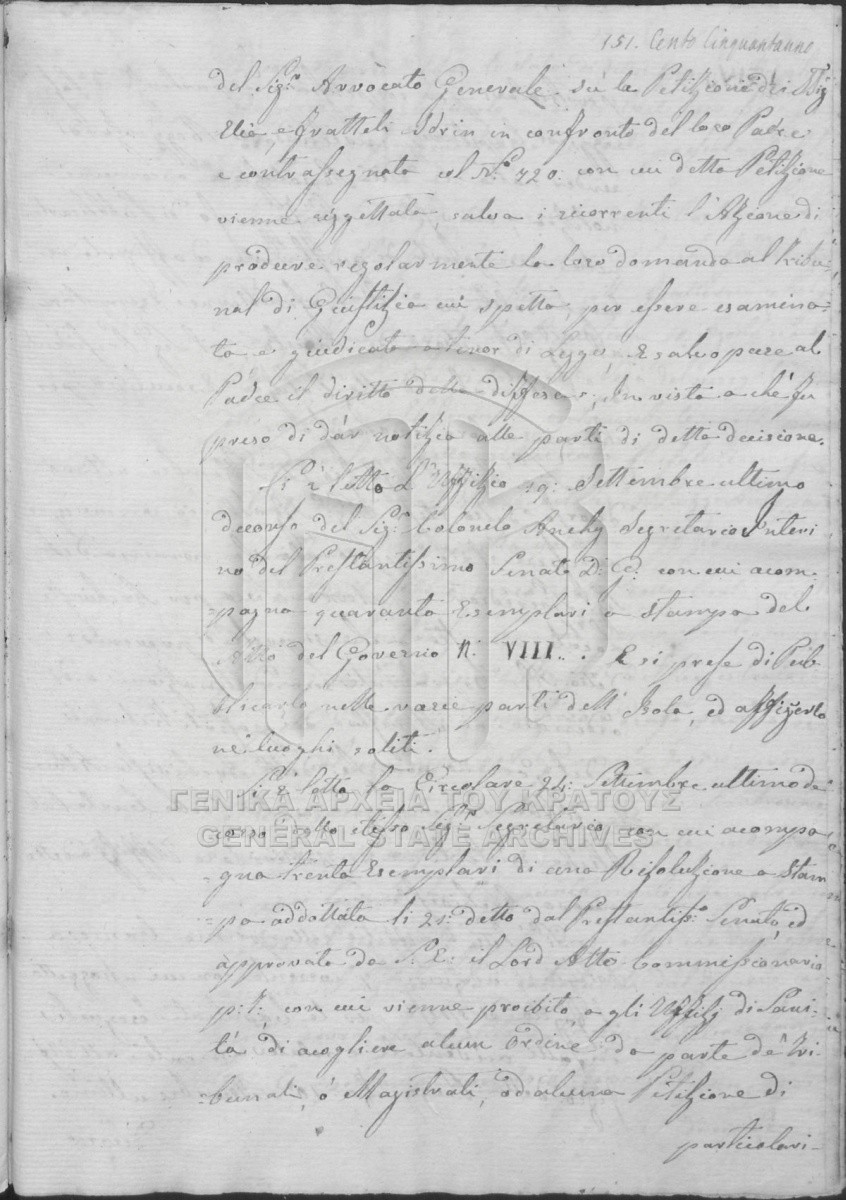 151. Cento Cinquantauno
del Sig.r Avvocato Generale su la Petizione dei Sig
Elia, e fratteli Idrin in confronto del loco Padre
e contrassegnata col N.o 720: con cui detta Petizione
vienne reggettata, salva i ricorrenti l'Azione di
produrre regolarmente la loro domanda al Tribu-
nal di Giustizia cui spetta, per essere esamina-
ta e giudicata a tenor di Legge, E salvo pure al
Padre il diritto delle diffese; In vista a che fu
preso di dar notizia alle parti di detta decisione.
Si è letto l'Uffizio 19: Settembre ultimo
decorso del Sig.r Colonelo Segretario Interi
no del Prestantissimo Senato D: G: con cui acom-
pagna quaranta Esemplari a stampa del
Atto del Governo N: VIII.. . E si prese di Pub
blicarlo nelle varie parti dell' Isola, ed affigerlo
ne' luoghi soliti.
Si è letta la Circolare 24: Settembre ultimo de-
corso dello stesso Sig.r Segretario con cui acompa-
gna trenta Esemplari di una Risoluzione a stam
pa addottata li 21: detto dal Prestantiss.o Senato, ed
approvata da S: E: il Lord Alto Commissionario
p: t:, con cui vienne proibito, a gli Uffizj di Sani-
tá, di acogliere alcun Ordine da parte de' Tri
bunali, ó Magistrati, od alcuna Petizione di
particolari-
ΓΕΝΙΚΑ ΑΡΧΕΙΑ ΤΟΥ ΚΡΑΤΟΥΣ
GENERAL STATE ARCHIVES